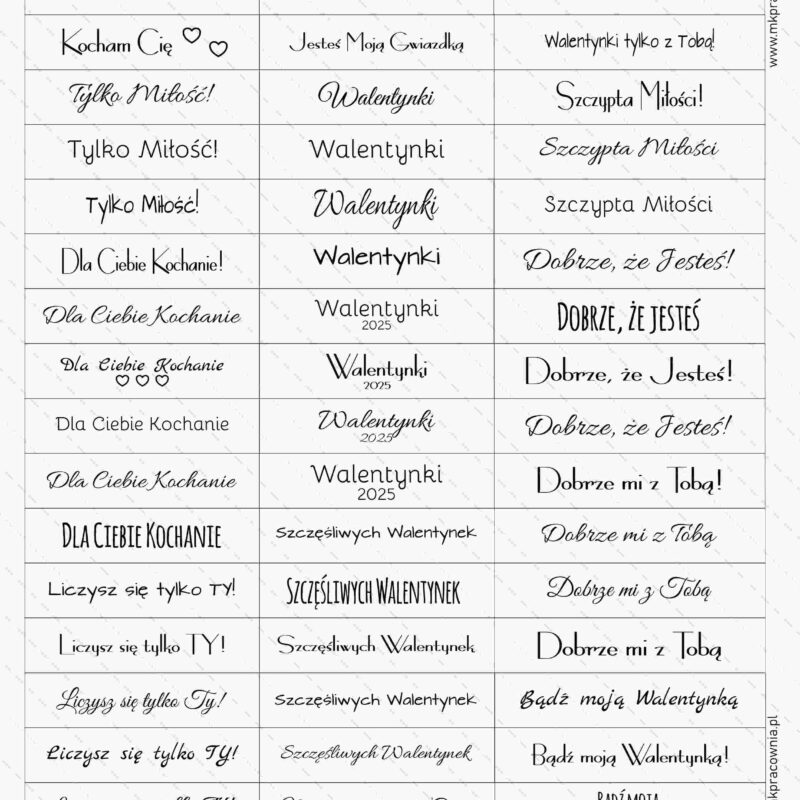 Kocham Cię
Jesteś Moją Gwiazdką
Walentynki tylko z Tobą!
Tylko Miłość!
Walentynki
Szczypta Miłości!
Tylko Miłość!
Walentynki
Szczypta Miłości
Tylko Miłość!
Walentynki
Szczypta Miłości
Dla Ciebie Kochanie!
Walentynki
Dobrze, że Jesteś!
Dla Ciebie Kochanie
Walentynki
2025
DOBRZE, ŻE JESTEŚ
Dla Ciebie Kochanie
Walentynki
2025
Dobrze, że Jesteś!
Dla Ciebie Kochanie
Walentynki
2025
Dobrze, że Jesteś!
Dla Ciebie Kochanie
Walentynki
2025
Dobrze mi z Tobą!
DLA CIEBIE KOCHANIE
Szczęśliwych Walentynek
Dobrze mi z Tobą
Liczysz się tylko TY!
SZCZĘŚLIWYCH WALENTYNEK
Dobrze mi z Tobą
Liczysz się tylko TY!
Szczęśliwych Walentynek
Dobrze mi z Tobą
Liczysz się tylko Ty!
Szczęśliwych Walentynek
Bądź moją Walentynką
Liczysz się tylko TY!
Szczęśliwych Walentynek
Bądź moją Walentynką!